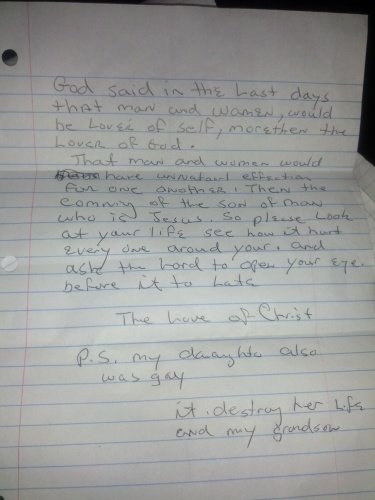 God said in the Last days
that man and women, would
be Lover of self, more then the
Lover of God.
That man and women would
have unnatural effection
for one another. Then the
comming of the son of man
who is Jesus. So please Look
at your life see how it hurt
every one around your. and
ask the Lord to open your eye.
before it to late
The Love of Christ
P.S. my daughter also
was gay
it. destroy her Life
and my grandson